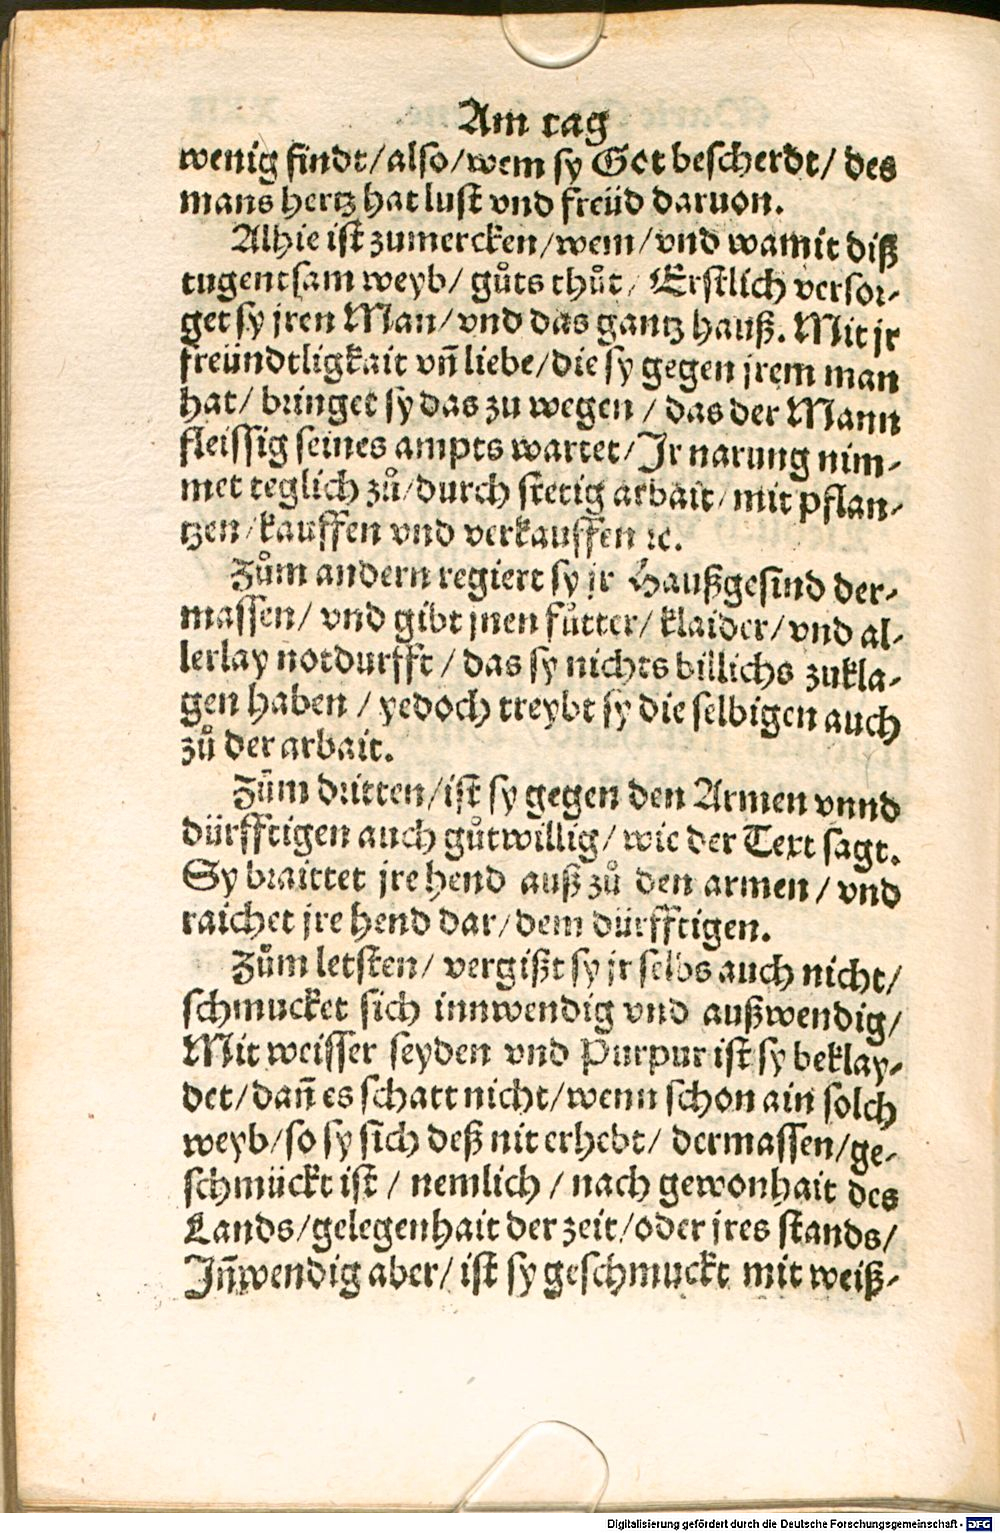 Am tag
wenig findt/also/wem sy Got bescherdt/ des
mans hertz hat lust vnd freüd daruon.
Alhie ist zumercken/wem/vnd wamit diß
tugentsam weyb/ gůts thůt/ Erstlich versor-
get sy jren Man/vnd das gantz hauß. Mit jr
freündtligkait vñ liebe/die sy gegen jrem man
hat/ bringet sy das zu wegen / das der Mann
fleissig seines ampts wartet/Jr narung nim-
met teglich zů/durch stetig arbait/mit pflan-
tzen/kauffen vnd verkauffen ꝛc.
Zům andern regiert sy jr Haußgesind der-
massen/ vnd gibt jnen fůtter/ klaider/vnd al-
lerlay notdurfft / das sy nichts billichs zukla-
gen haben / yedoch treybt sy die selbigen auch
zů der arbait.
Zům dritten/ist sy gegen den Armen vnnd
dürfftigen auch gůtwillig/ wie der Text sagt.
Sy braittet jre hend auß zů den armen / vnd
raichet jre hend dar/dem dürfftigen.
Zům letsten/ vergißt sy jr selbs auch nicht/
schmucket sich innwendig vnd außwendig/
Mit weisser seyden vnd Purpur ist sy beklay-
det/dañ es schatt nicht/wenn schon ain solch
weyb/so sy sich deß nit erhebt/ dermassen/ge-
schmückt ist / nemlich / nach gewonhait des
Lands/gelegenhait der zeit/oder jres stands/
Jñwendig aber/ ist sy geschmuckt mit weiß-
Digitalisierung gefördert durch die Deutsche Forschungsgemeinschaft - DFG